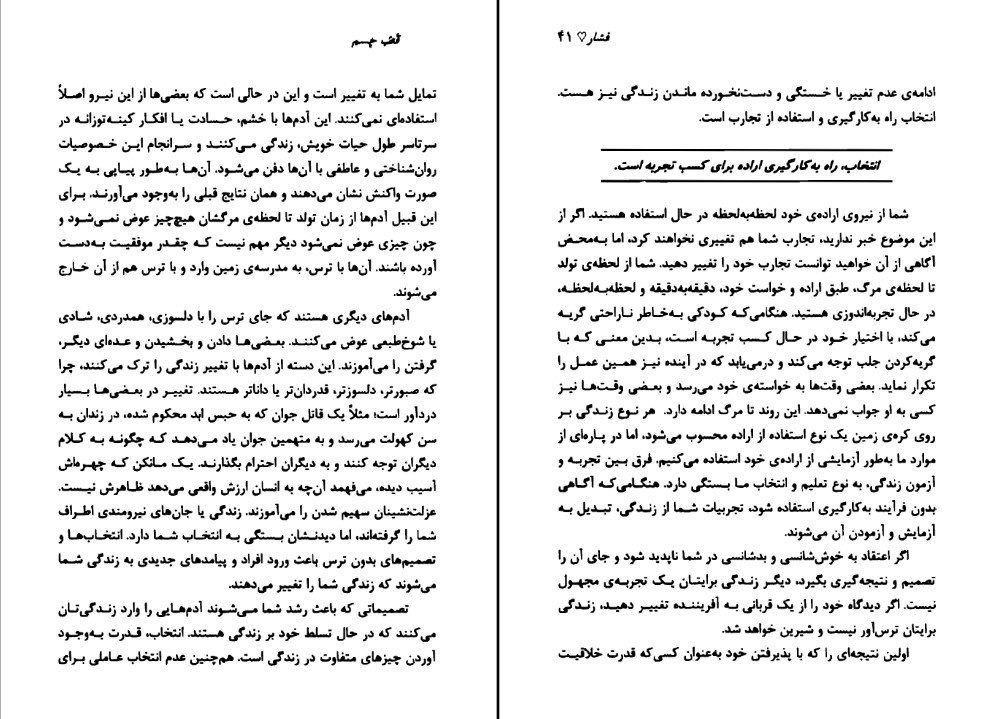 تمایل شما به تغییر است و این در حالی است که بعضی‌ها از این نیرو اصلاً
استفاده‌ای نمی‌کنند. این آدم‌ها با خشم، حسادت یا افکار کینه‌توزانه در
سرتاسر طول حیات خویش، زندگی می‌کنند و سرانجام این خصوصیات
روان‌شناختی و عاطفی با آن‌ها دفن می‌شود. آن‌ها به‌طور پیاپی به یک
صورت واکنش نشان می‌دهند و همان نتایج قبلی را به‌وجود می‌آورند. برای
این قبیل آدم‌ها از زمان تولد تا لحظه‌ی مرگشان هیچ‌چیز عوض نمی‌شود و
چون چیزی عوض نمی‌شود دیگر مهم نیست که چقدر موفقیت به‌دست
آورده باشند. آن‌ها با ترس، به مدرسه‌ی زمین وارد و با ترس هم از آن خارج
می‌شوند.
آدم‌های دیگری هستند که جای ترس را با دلسوزی، همدردی، شادی
یا شوخ‌طبعی عوض می‌کنند. بعضی‌ها دادن و بخشیدن و عده‌ای دیگر،
گرفتن را می‌آموزند. این دسته از آدم‌ها با تغییر زندگی را ترک می‌کنند، چرا
که صبورتر، دلسوزتر، قدردان‌تر یا داناتر هستند. تغییر در بعضی‌ها بسیار
دردآور است؛ مثلاً یک قاتل جوان که به حبس ابد محکوم شده، در زندان به
سن کهولت می‌رسد و به متهمین جوان یاد می‌دهد که چگونه به کلام
دیگران توجه کنند و به دیگران احترام بگذارند. یک مانکن که چهره‌اش
آسیب دیده، می‌فهمد آن‌چه به انسان ارزش واقعی می‌دهد ظاهرش نیست.
عزلت‌نشینان سهیم شدن را می‌آموزند. زندگی یا جان‌های نیرومندی اطراف
شما را گرفته‌اند، اما دیدنشان بستگی به انتخاب شما دارد. انتخاب‌ها و
تصمیم‌های بدون ترس باعث ورود افراد و پیامدهای جدیدی به زندگی شما
می‌شوند که زندگی شما را تغییر می‌دهند.
تصمیماتی که باعث رشد شما می‌شوند آدم‌هایی را وارد زندگی‌تان
می‌کنند که در حال تسلط خود بر زندگی هستند. انتخاب، قدرت به‌وجود
آوردن چیزهای متفاوت در زندگی است. هم‌چنین عدم انتخاب عاملی برای
فشار ♡ ۴۱
ادامه‌ی عدم تغییر یا خستگی و دست‌نخورده ماندن زندگی نیز هست.
انتخاب راه به‌کارگیری و استفاده از تجارب است.
انتخاب، راه به‌کارگیری اراده برای کسب تجربه است.
شما از نیروی اراده‌ی خود لحظه‌به‌لحظه در حال استفاده هستید. اگر از
این موضوع خبر ندارید، تجارب شما هم تغییری نخواهند کرد، اما به‌محض
آگاهی از آن خواهید توانست تجارب خود را تغییر دهید. شما از لحظه‌ی تولد
تا لحظه‌ی مرگ، طبق اراده و خواست خود، دقیقه‌به‌دقیقه و لحظه‌به‌لحظه،
در حال تجربه‌اندوزی هستید. هنگامی‌که کودکی به‌خاطر ناراحتی گریه
می‌کند، با اختیار خود در حال کسب تجربه است، بدین معنی که با
گریه‌کردن جلب توجه می‌کند و درمی‌یابد که در آینده نیز همین عمل را
تکرار نماید. بعضی وقت‌ها به خواسته‌ی خود می‌رسد و بعضی وقت‌ها نیز
کسی به او جواب نمی‌دهد. این روند تا مرگ ادامه دارد. هر نوع زندگی بر
روی کره‌ی زمین یک نوع استفاده از اراده محسوب می‌شود، اما در پاره‌ای از
موارد ما به‌طور آزمایشی از اراده‌ی خود استفاده می‌کنیم. فرق بین تجربه و
آزمون زندگی، به نوع تعلیم و انتخاب ما بستگی دارد. هنگامی‌که آگاهی
بدون فرآیند به‌کارگیری استفاده شود، تجربیات شما از زندگی، تبدیل به
آزمایش و آزمودن آن می‌شوند.
اگر اعتقاد به خوش‌شانسی و بدشانسی در شما ناپدید شود و جای آن را
تصمیم و نتیجه‌گیری بگیرد، دیگر زندگی برایتان یک تجربه‌ی مجهول
نیست. اگر دیدگاه خود را از یک قربانی به آفریننده تغییر دهید، زندگی
برایتان ترس‌آور نیست و شیرین خواهد شد.
اولین نتیجه‌ای را که با پذیرفتن خود به‌عنوان کسی‌که قدرت خلاقیت